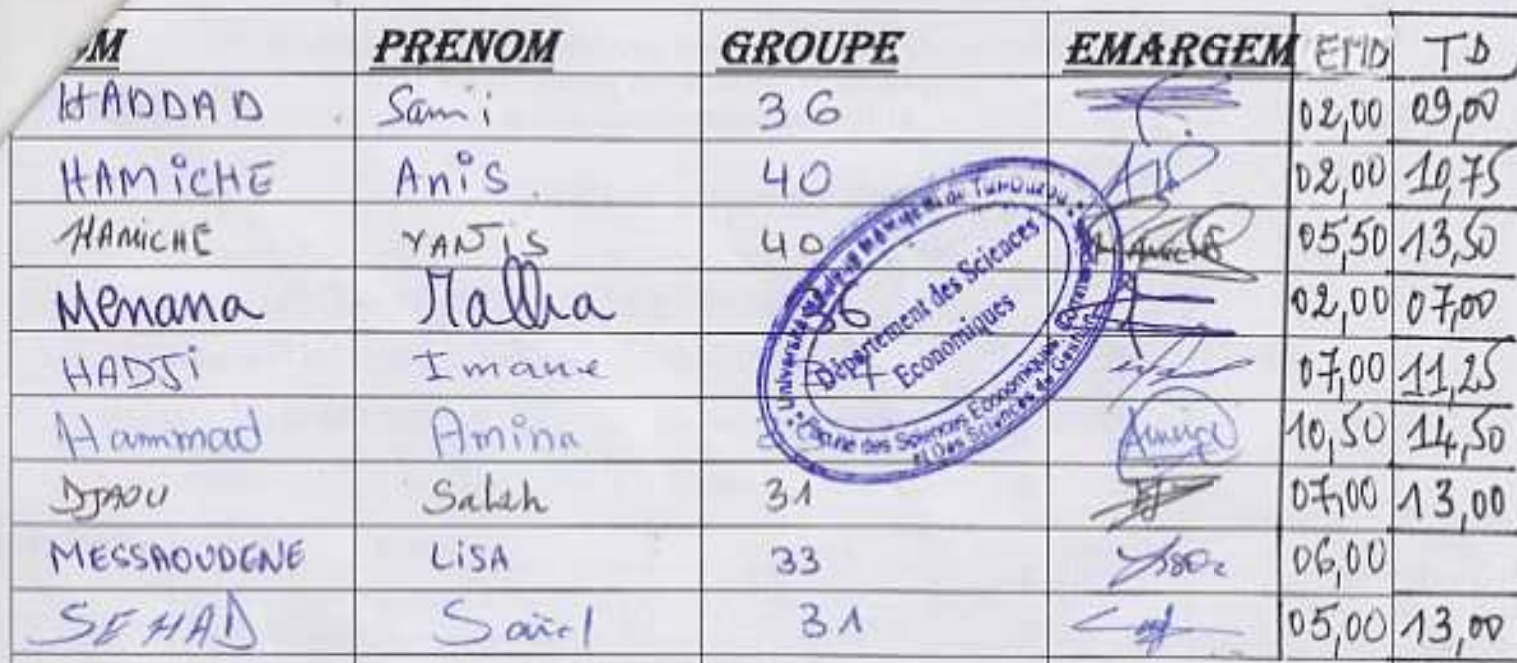 OM PRENOM GROUPE EMARGEM EMD TD
HADDAD Sami 36 02,00 09,00
HAMiCHE Anis 40 02,00 10,75
HAMICHE YANiS 40 HAMICHE 05,50 13,50
Menana Malha 36 02,00 07,00
HADJi Imane 07,00 11,25
Hammad Amina Amina 10,50 14,50
DJAOU Saleh 31 07,00 13,00
MESSAOUDENE LiSA 33 06,00
SEHAD Saïd 31 05,00 13,00
Département des Sciences
Economiques
Faculté des Sciences Economiques, Commerciales
et Des Sciences de Gestion